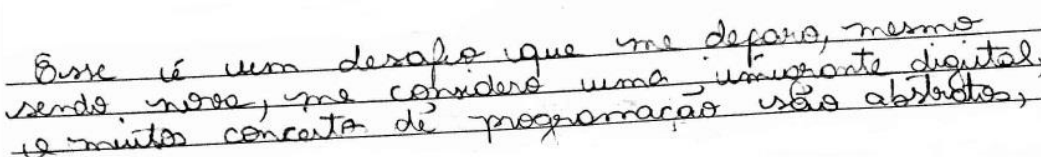 Esse é um desafio que me deparo, mesmo
sendo nova, me considero uma imigrante digital,
e muitos conceito de programação são abstratos,